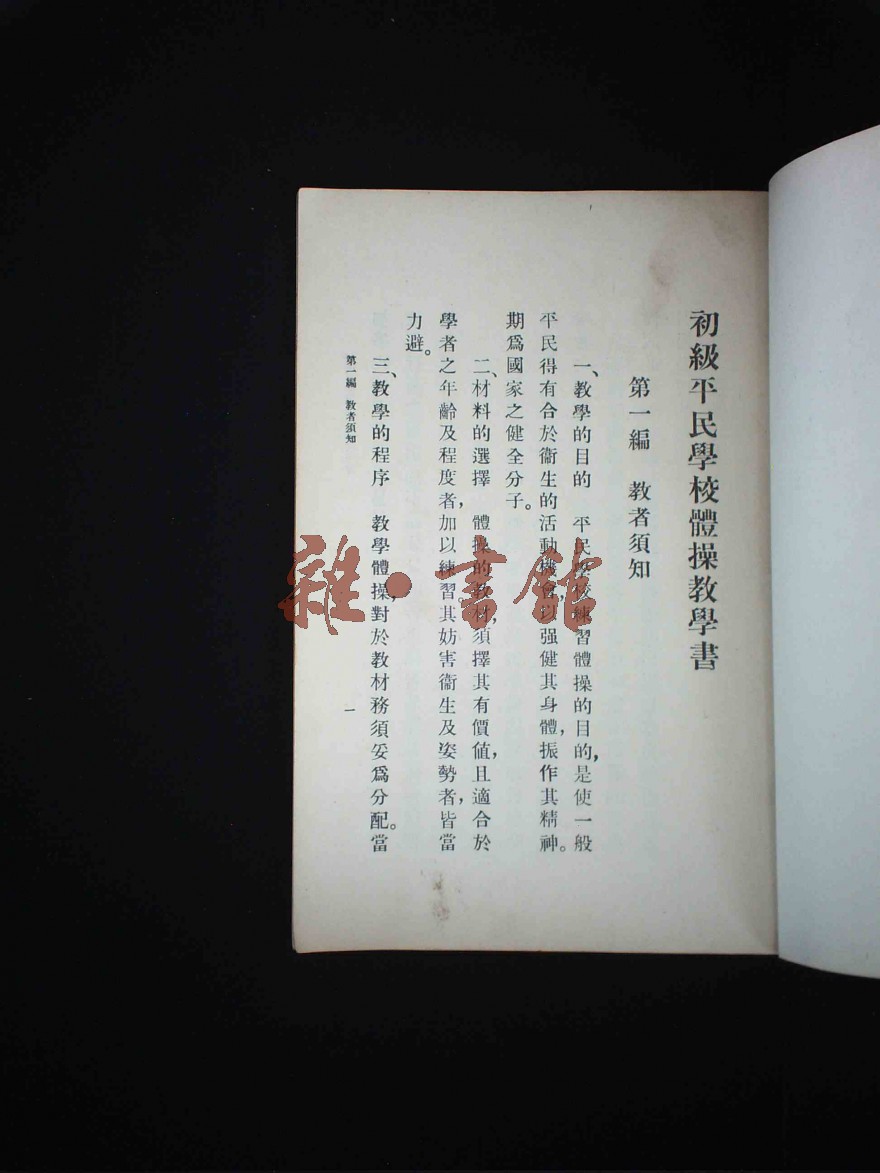 初級平民學校體操教學書
第一編　教者須知
一、教學的目的　平民學校練習體操的目的，是使一般
平民得有合於衞生的活動機會，以强健其身體，振作其精神。
期爲國家之健全分子。
二、材料的選擇　體操的教材，須擇其有價値，且適合於
學者之年齡及程度者，加以練習。其妨害衞生及姿勢者，皆當
力避。
三、教學的程序　教學體操，對於教材務須妥爲分配。當
第一編　教者須知
一
雜·書館